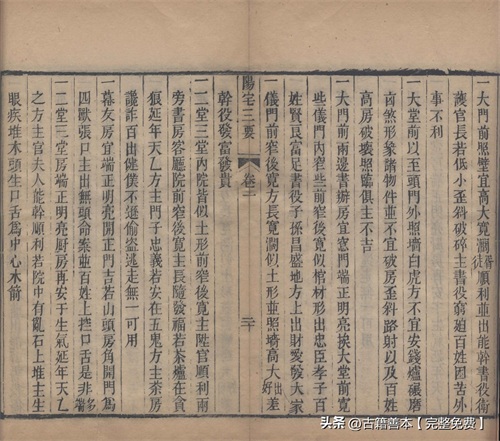 一大門前照壁宜高大寬濶並出能幹書役衙
護官長若低小歪斜破碎主書役窮廹百姓困苦外
事不利
一大堂前以至頭門外照墻白虎方不宜安錢爐碾磨
齒煞形象諸物件並不宜破房歪斜路射以及百姓
高房破壞照臨俱主不吉
一大門前兩邊書辦房宜窓門端正明亮挨大堂前寛
些儀門內窄些前寬後窄似棺材形出忠臣孝子百
姓賢良富足書役子孫昌盛地方上出財愛發大家
一儀門前窄後寬方長寛濶似土形並照墻高大好出差
陽宅三要
卷二
二十
幹役發富發貴
一二堂三堂內院皆似土形前窄後寛主陞官順利若
旁書房客廳院前窄後寛主長隨發福若茶爐在貪
狼延年天乙方主門子忠義若安在五鬼方主茶房
讒詐百出進僕不遜偷盜逃走無一可用
一幕友房宜端正明亮開正門吉若山頭房角開門爲
四獸張口主出無頭命案並百姓上控口舌是非多端
一二堂三堂房端正明亮厨房再安于生氣延年天乙
之方主官夫人能幹順利若院中有亂石上堆主生
眼疾堆木頭生口舌爲中心木箭
头条 @古籍善本【完整免费】